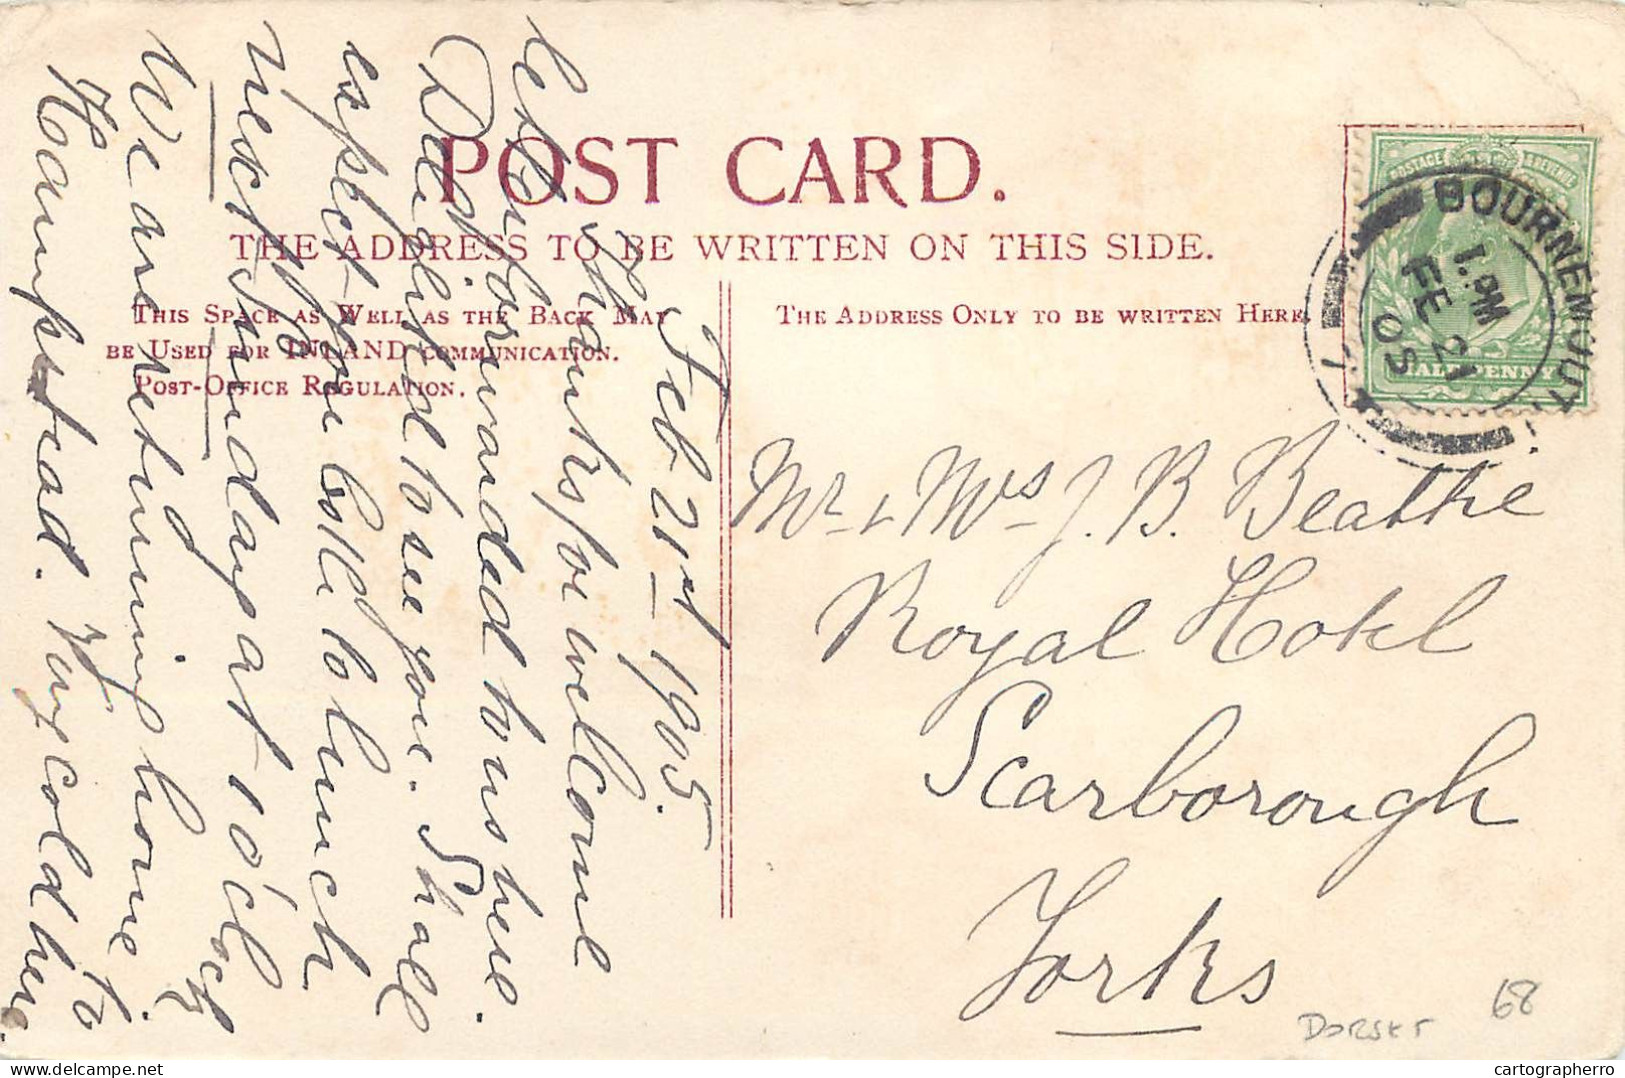 POST CARD.
THE ADDRESS TO BE WRITTEN ON THIS SIDE.
THIS SPACE AS WELL AS THE BACK MAY
BE USED FOR INLAND COMMUNICATION.
POST-OFFICE REGULATION.
THE ADDRESS ONLY TO BE WRITTEN HERE
POSTAGE & REVENUE
HALFPENNY
BOURNEMOUTH
1. PM
FE 21
05
Feb 21st 1905.
Thanks for welcome
letter forwarded to us here.
Delighted to see you. Shall
expect you both to lunch
next Sunday at 1 o'clock
We are returning home to
Hampstead. Very cold here.
Mr & Mrs J. B. Beattie
Royal Hotel
Scarborough
Yorks
DORSET
68
cartographerro